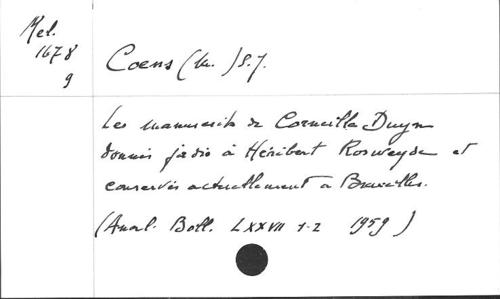 Mel.
1678
9
Coens (M.) S.J.
Les manuscrits de Corneille Duyn
donnés jadis à Héribert Rosweyde et
conservés actuellement à Bruxelles.
(Anal. Boll. LXXVII 1-2 1959)